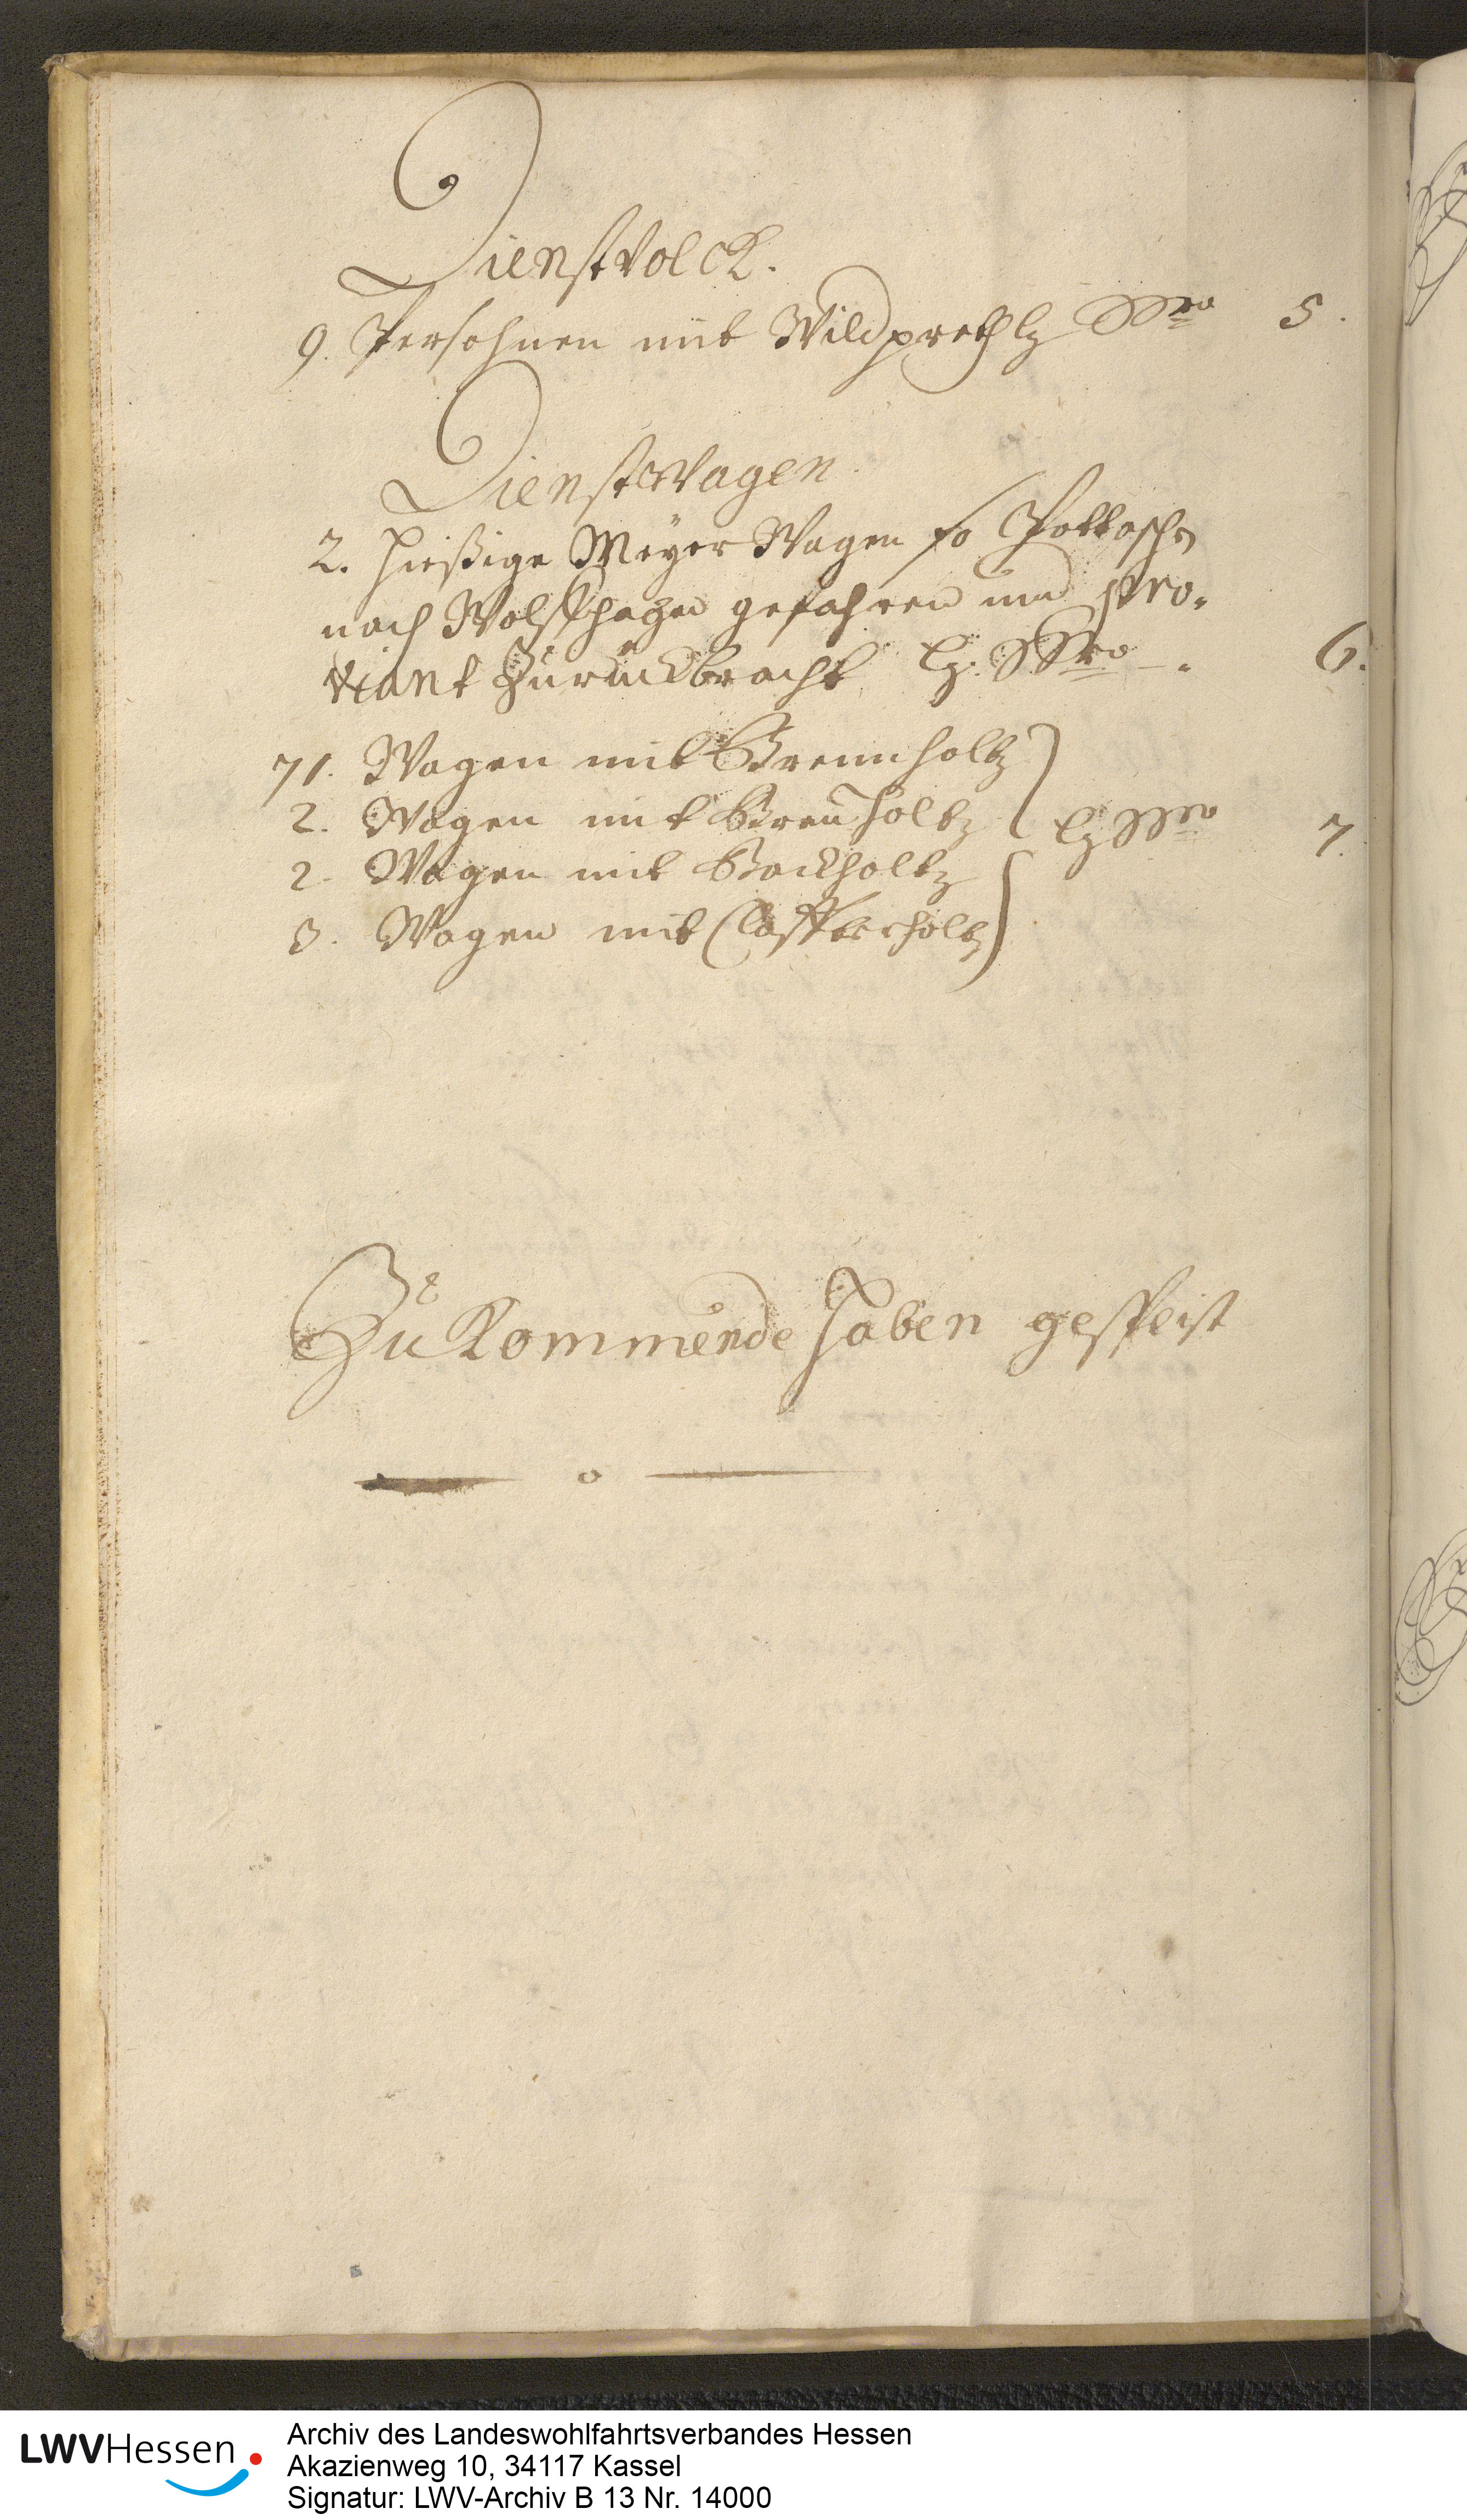 Dienstvolck.
9. Persohnen mit Wildpreth lz 5.
Dienstwagen
2. hießige Meyer Wagen so Pottasche
nach Wolffhagen gefahren und pro-
viant Zurückbracht lz. 6.
71. Wagen mit Brennholtz
2. Wagen mit Breüholtz lz 7.
2. Wagen mit Backholtz
3. Wagen mit Claffterholtz
Zukommende haben gespeist
o
LWVHessen
Archiv des Landeswohlfahrtsverbandes Hessen
Akazienweg 10, 34117 Kassel
Signatur: LWV-Archiv B 13 Nr. 14000